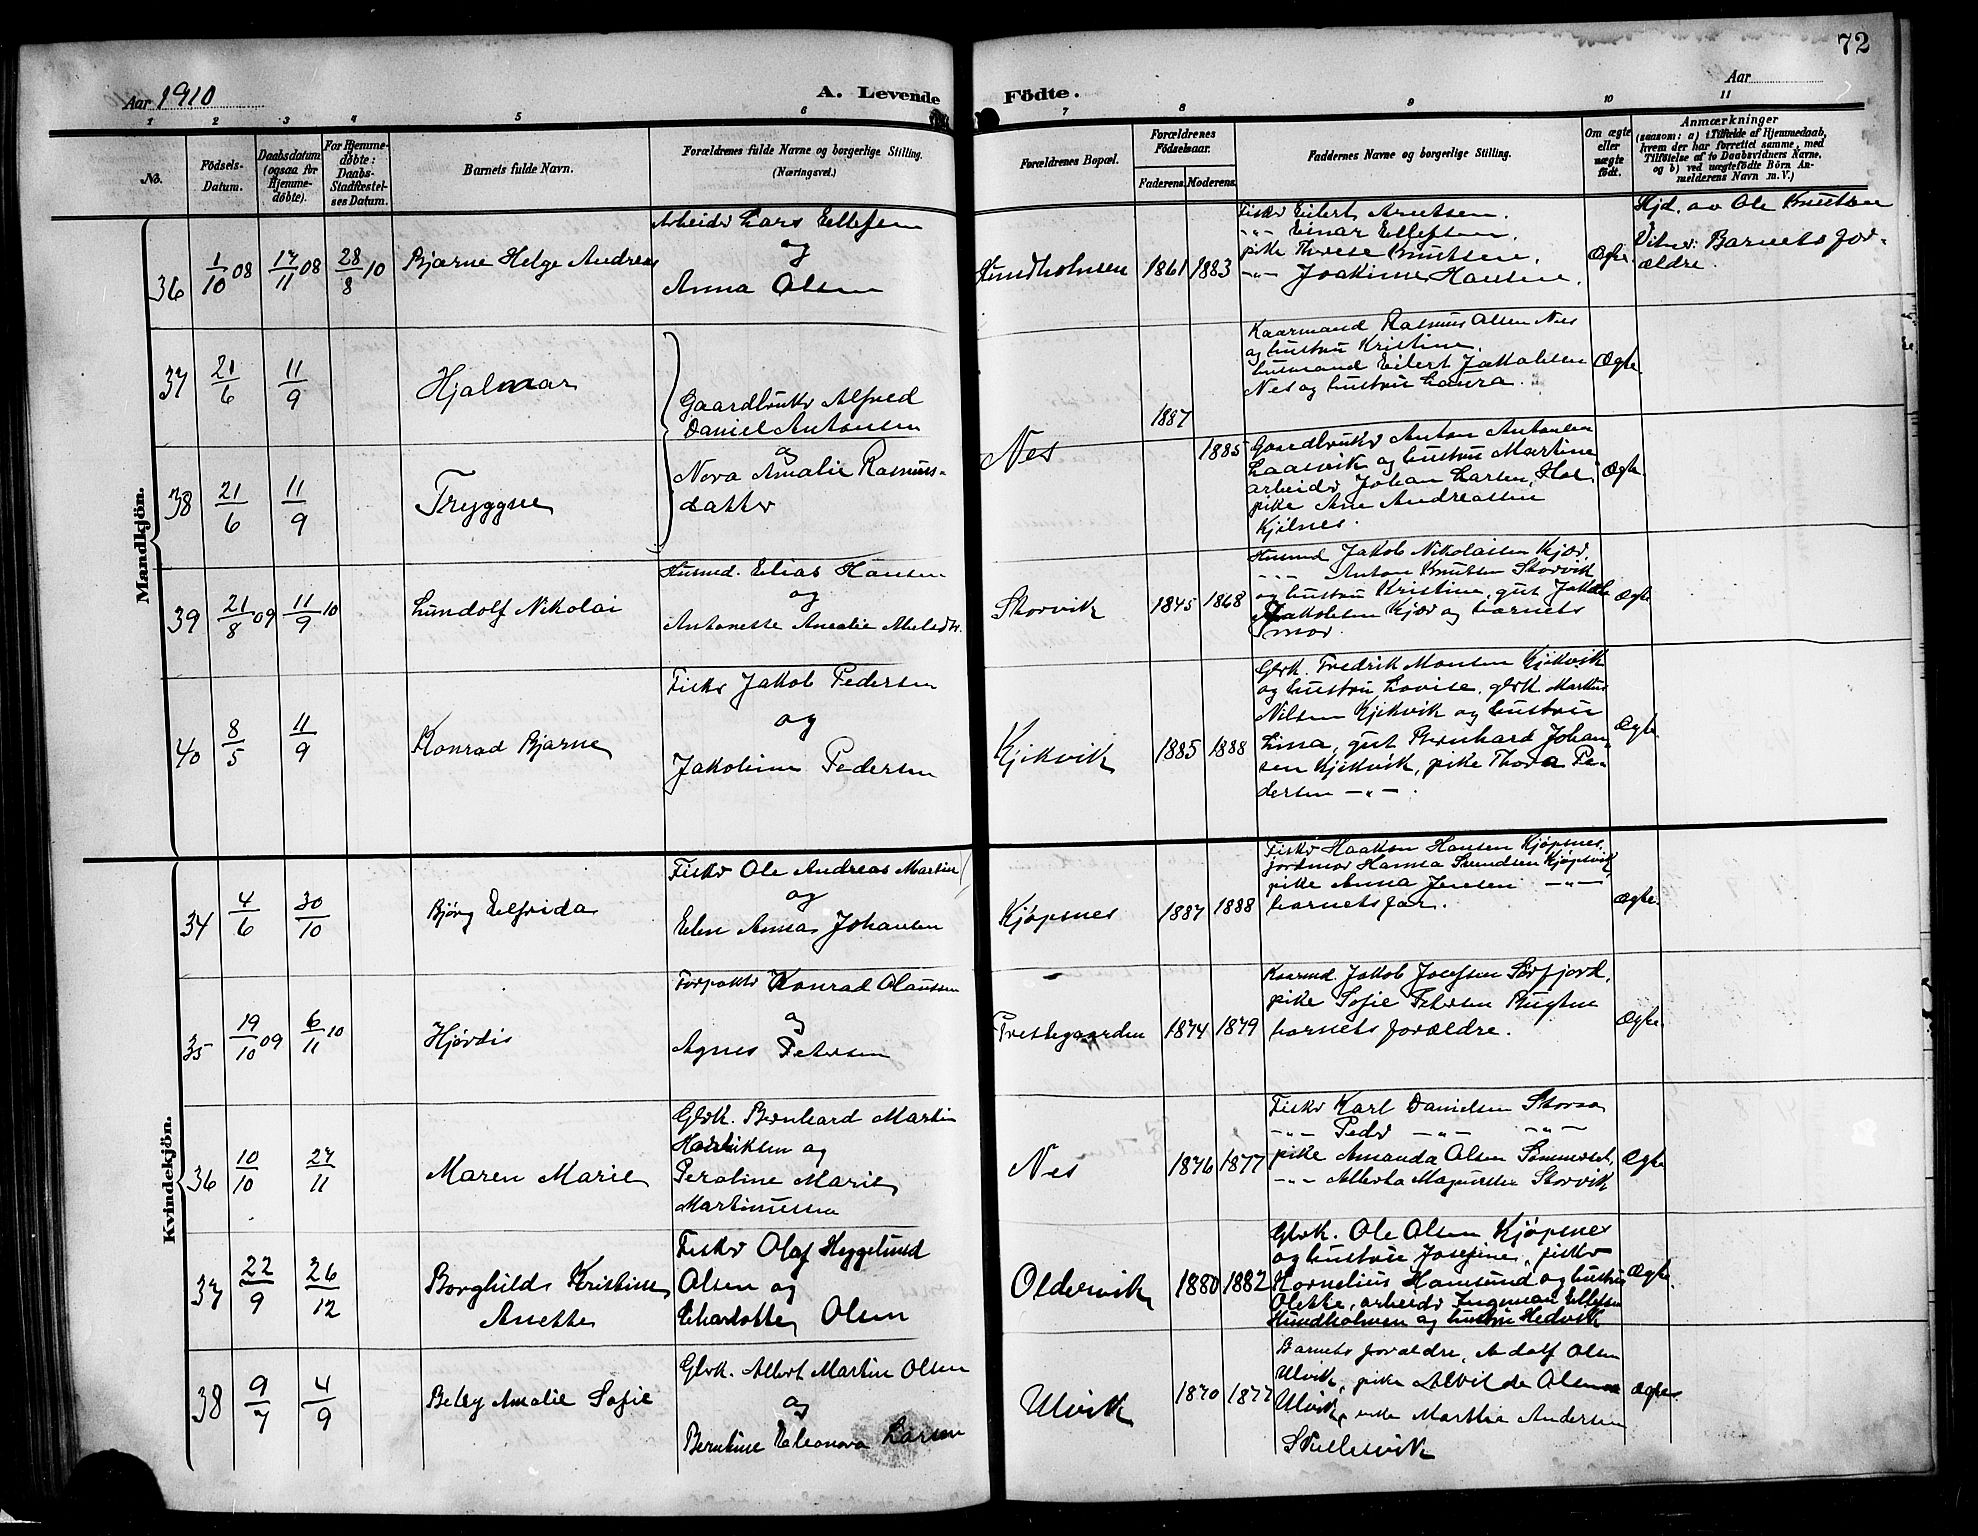 72
Aar 1910
A. Levende Födte.
Aar
1 2 3 4 5 6 7 8 9 10 11
No.
Födsels-Datum.
Daabsdatum (ogsaa for Hjemmedøbte).
For Hjemmedøbte: Daabs-Stadfæstelses Datum.
Barnets fulde Navn.
Forældrenes fulde Navne og borgerlige Stilling. (Næringsvei.)
Forældrenes Bopæl.
Forældrenes Födselsaar.
Faderens. Moderens.
Faddernes Navne og borgerlige Stilling.
Om ægte eller uægte födt.
Anmærkninger
(saasom: a) i Tilfælde af Hjemmedaab,
hvem der har forrettet samme, med
Tilføielse af to Daabsvidners Navne,
og b) ved uægtefödte Börn Anmelderens Navn m. V.)
Mandkjön.
36
1/10 08
17/11 08
28/8 10
Bjarne Helge Andreas
Arbeider Lars Ellefsen
og
Anna Olsen
Hundholmen
1861
1883
Fisker Eilert Arntsen.
-"- Einar Ellefsen.
pike Therese Knutsen.
-"- Joakime Hansen.
Ægte.
Hjd. av Ole Knutsen
Vitner: Barnets for-
ældre.
37
21/6
11/9
Hjalmar
Gaardbruker Alfred
Daniel Antonsen
og
Nora Amalie Rasmus-
datter
Nes
1887
1885
Kaarmand Rasmus Olsen Nes
og hustru Kristine.
husmand Eilert Jakobsen
Nes og hustru Laura.
Ægte.
38
21/6
11/9
Tryggve
Gaardbruker Anton Antonsen
og hustru Martine
arbeider Johan Larsen, Hol,
pike Ane Andreassen
Kjelnes.
Ægte
39
21/8 09
11/9 10
Lundolf Nikolai
Husmd. Elias Hansen
og
Antonette Amalie
Storvik
1845
1868
Husmd Jakob Nikolaisen Kjær.
-"- Anton Knutsen Storvik
og hustru Kristine, gut Jakob
Jakobsen Kjær og barnets
mor.
Ægte
40
8/5
11/9
Konrad Bjarne
Fisker Jakob Pedersen
og
Jakobine Pedersen
Kjikvik
1885
1888
Gbrk. Fredrik Monsen Kjikvik
og hustru Lovise, gbrk Markus
Nilsen Kjikvik og hustru
Lina, gut Bernhard Johan-
sen Kjikvik, pike Thora Pe-
dersen -"-.
Ægte
Kvindekjön.
34
4/6
30/10
Bjørg Elfrida
Fisker Ole Andreas Martin
og
Elen Anna Johansen
Kjøpsnes
1887
1888
Fisker Haakon Hansen Kjøpsnes,
jordmor Hanna Svendsen Kjøpsvik,
pike Anna Jensen -"-
barnets far.
Ægte.
35
19/10 09
6/11 10
Hjørdis
Forpakter Konrad Olaussen
og
Agnes Petersen
Prestegaarden
1874
1879
Kaarmd. Jakob Josefsen Sørfjord,
pike Sofie Petersen
barnets forældre.
Ægte.
36
10/10
27/11
Maren Marie
Gbrk. Bernhard Martin
Henriksen og
Peroline Marie
Martinussen
Nes
1876
1877
Fisker Karl Danielsen Storaa
-"- Peder -"- -"-
pike Amanda Olsen Sommerset,
-"- Alberta Magnussen Storvik
Ægte
37
22/9
26/12
Borghild Kristine
Anette
Fisker Olaf Heggelund
Olsen og
Charlotte Olsen
Oldervik
1880
1882
Gbrk. Ole Olsen Kjøpsnes
og hustru Josefine, fisker
Kornelius Hamsund og hustru
Olette, arbeider Ingeman Ellefsen
Hundholmen og hustru Hedvik
Ægte.
38
9/7
4/9
Betzy Amalie Sofie
Gbrk. Albert Martin Olsen
og
Berntine Eleonora Larsen
Ulvik
1870
1877
Barnets forældre, Adolf Olsen
Ulvik, pike Alvilde Olsen
Ulvik, enke Marthe Andersen
Skillesvik
Ægte.